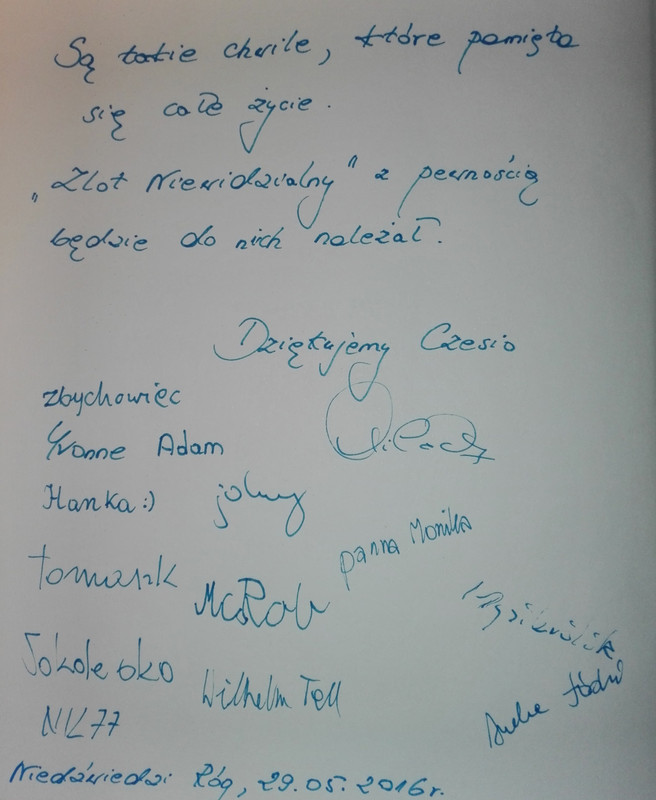 Są takie chwile, które pamięta
się całe życie.
„Zlot Niewidzialny" z pewnością
będzie do nich należał.
Dziękujemy Czesio
zbychowiec
Yvonne Adam
Hanka:)
panna Monika
tomaszk
McRob
Sokole oko
Wilhelm Tell
NIL77
Niedźwiedzi Róg, 29.05.2016r.